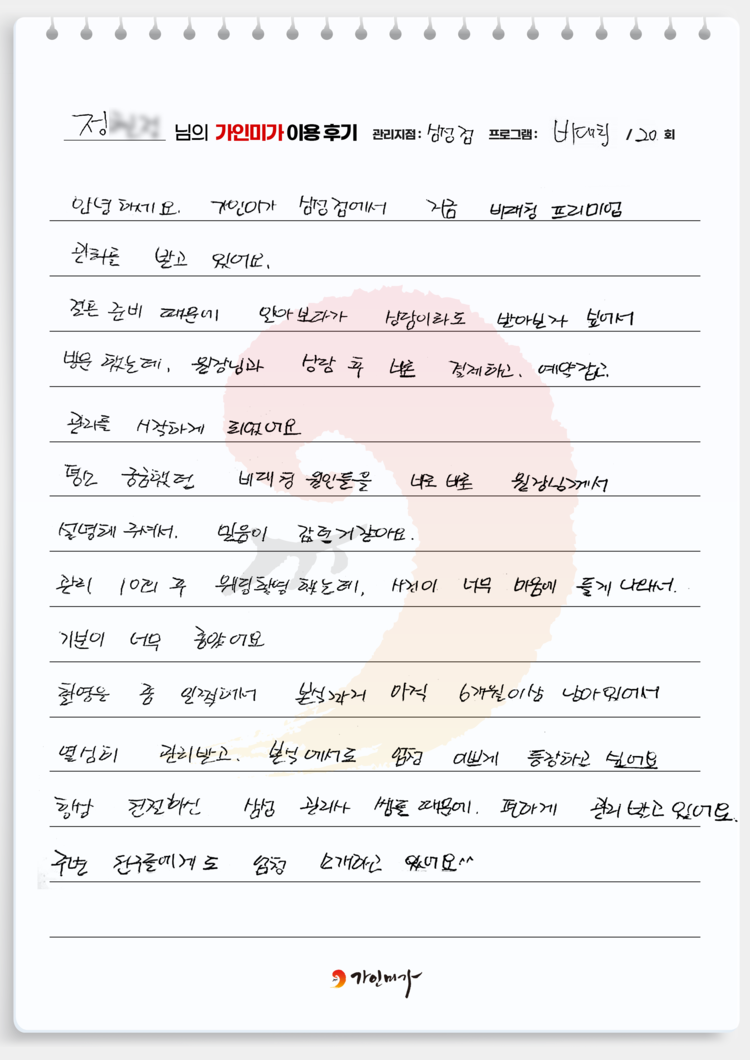 정 님의 가인미가 이용 후기 관리지점: 삼성점 프로그램: 비대칭 / 20 회
안녕하세요. 가인미가 삼성점에서 지금 비대칭 프리미엄
관리를 받고 있어요.
결혼 준비 때문에 알아보다가 상담이라도 받아보자 싶어서
방문 했는데, 원장님과 상담 후 바로 결제하고, 예약잡고,
관리를 시작하게 되었어요
평소 궁금했던 비대칭 원인들을 바로 바로 원장님께서
설명해 주셔서, 믿음이 갔던거같아요.
관리 10회 후 웨딩촬영 했는데, 사진이 너무 마음에 들게 나와서.
기분이 너무 좋았어요
촬영은 좀 일찍해서 본식까지 아직 6개월이상 남아있어서
열심히 관리받고, 본식에서도 엄청 이쁘게 등장하고 싶어요
항상 친절하신 삼성 관리사 쌤들 때문에. 편하게 관리 받고 있어요.
주변 친구들에게도 엄청 소개하고 있어요^^
가인미가